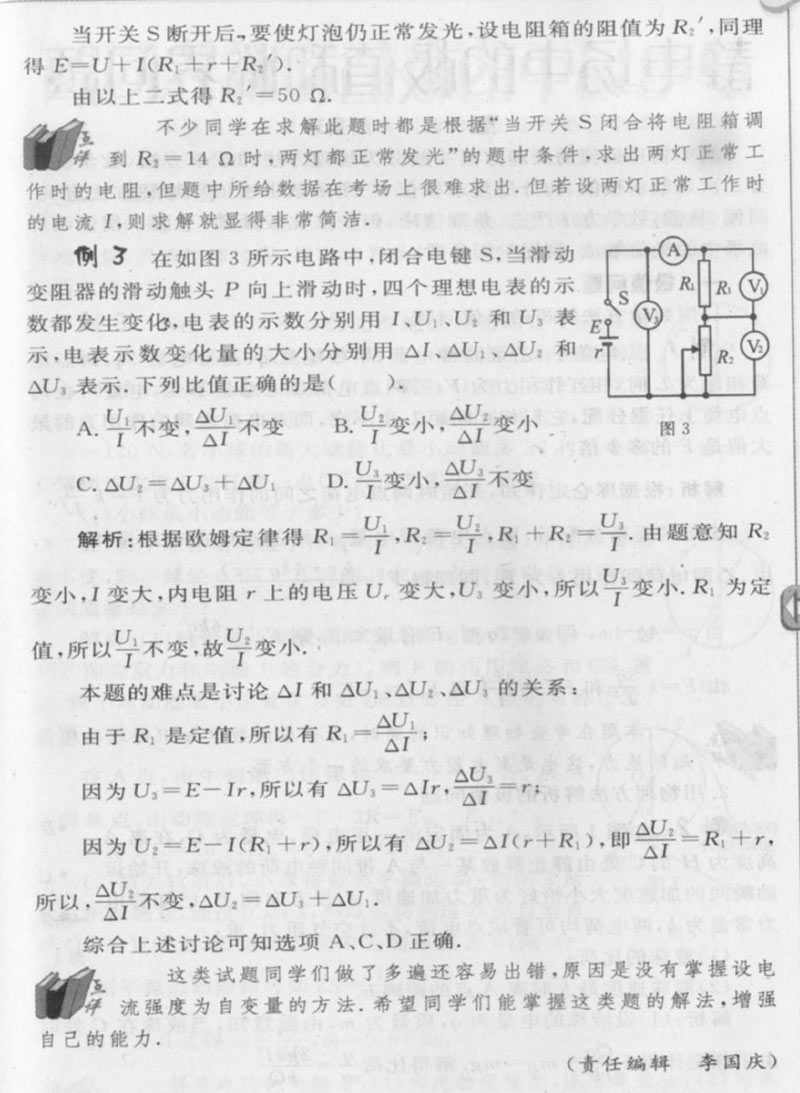 当开关 S 断开后,要使灯泡仍正常发光,设电阻箱的阻值为 R₂′,同理
得 E=U+I(R₁+r+R₂′).
由以上二式得 R₂′=50 Ω.
点评 不少同学在求解此题时都是根据“当开关 S 闭合将电阻箱调
到 R₂=14 Ω 时,两灯都正常发光”的题中条件,求出两灯正常工
作时的电阻,但题中所给数据在考场上很难求出.但若设两灯正常工作时
的电流 I,则求解就显得非常简洁.
例 3 在如图 3 所示电路中,闭合电键 S,当滑动
变阻器的滑动触头 P 向上滑动时,四个理想电表的示
数都发生变化,电表的示数分别用 I、U₁、U₂ 和 U₃ 表
示,电表示数变化量的大小分别用 ΔI、ΔU₁、ΔU₂ 和
ΔU₃ 表示.下列比值正确的是( ).
A. U₁/I 不变,ΔU₁/ΔI 不变 B. U₂/I 变小,ΔU₂/ΔI 变小
C. ΔU₂=ΔU₃+ΔU₁ D. U₃/I 变小,ΔU₃/ΔI 不变
A
S
E
r
V₃
R₁
R₁
V₁
P
R₂
V₂
图 3
解析:根据欧姆定律得 R₁=U₁/I,R₂=U₂/I,R₁+R₂=U₃/I.由题意知 R₂
变小,I 变大,内电阻 r 上的电压 Uᵣ 变大,U₃ 变小,所以 U₃/I 变小.R₁ 为定
值,所以 U₁/I 不变,故 U₂/I 变小.
本题的难点是讨论 ΔI 和 ΔU₁、ΔU₂、ΔU₃ 的关系:
由于 R₁ 是定值,所以有 R₁=ΔU₁/ΔI;
因为 U₃=E-Ir,所以有 ΔU₃=ΔIr,ΔU₃/ΔI=r;
因为 U₂=E-I(R₁+r),所以有 ΔU₂=ΔI(r+R₁),即 ΔU₂/ΔI=R₁+r,
所以,ΔU₂/ΔI 不变,ΔU₂=ΔU₃+ΔU₁.
综合上述讨论可知选项 A、C、D 正确.
点评 这类试题同学们做了多遍还容易出错,原因是没有掌握设电
流强度为自变量的方法.希望同学们能掌握这类题的解法,增强
自己的能力.
(责任编辑 李国庆)